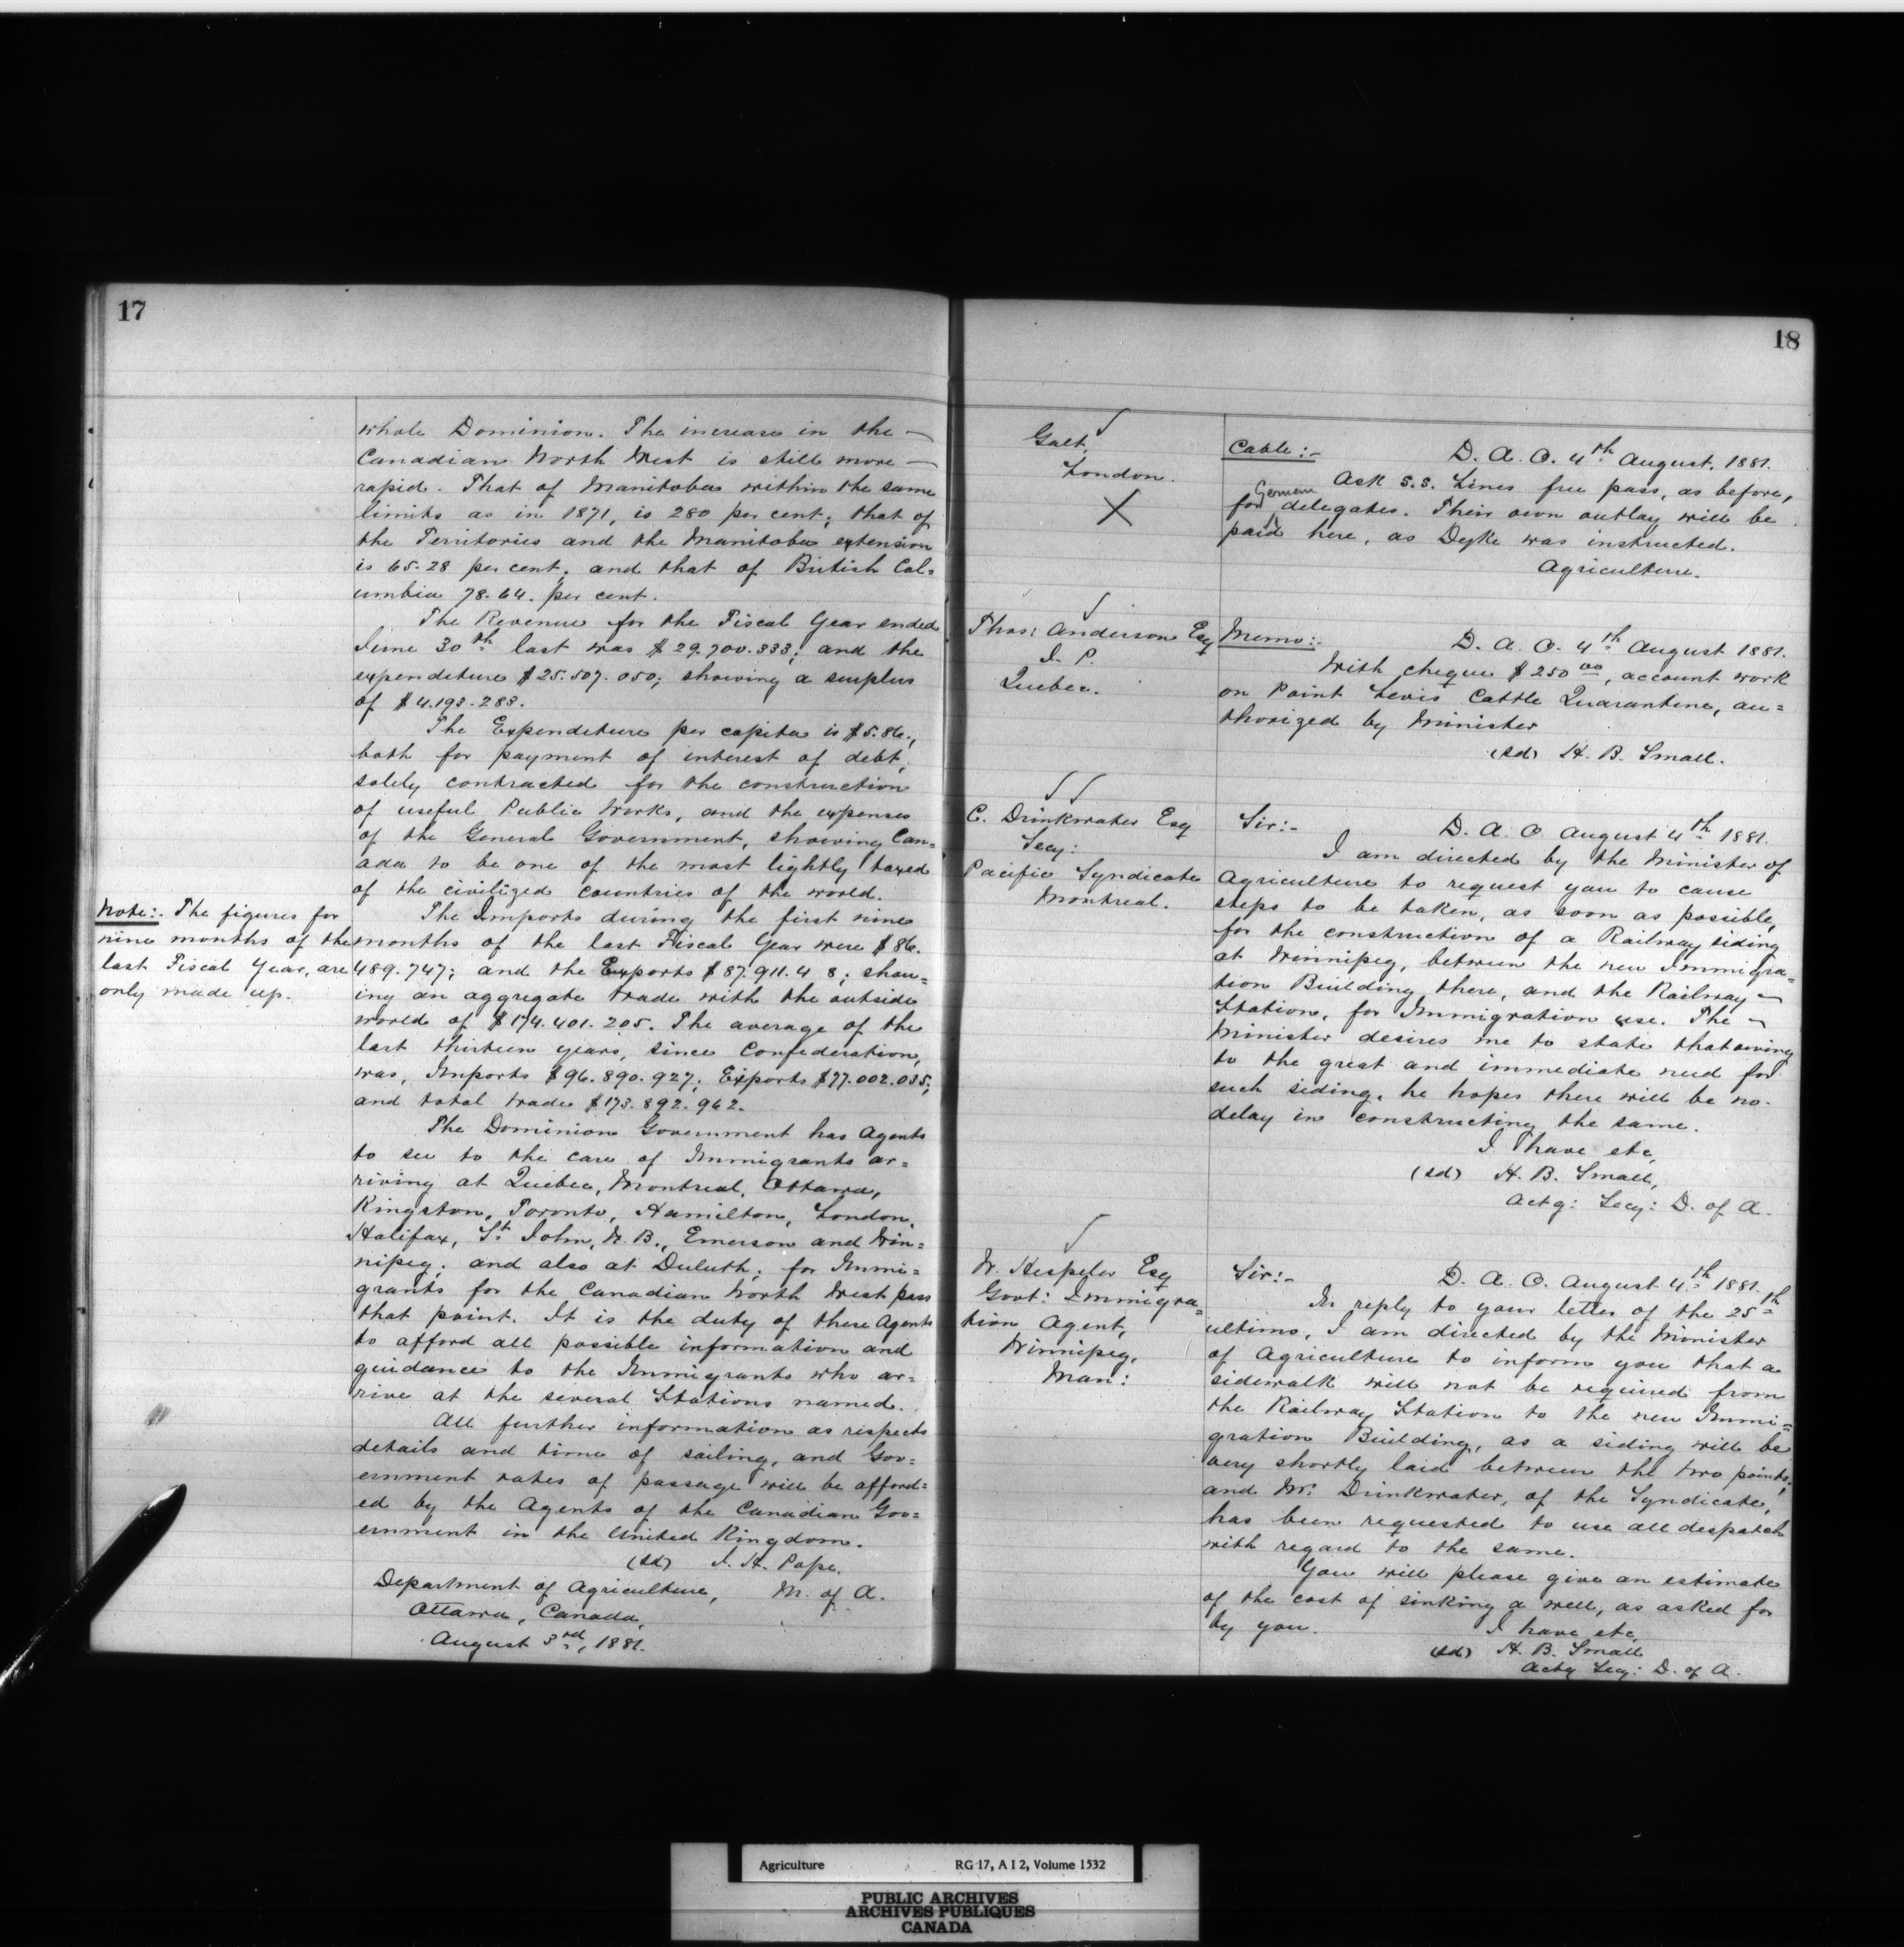 17
whole Dominion. The increase in the
Canadian North West is still more
rapid. That of Manitoba within the same
limits as in 1871, is 280 per cent; that of
the Territories and the Manitoba extension
is 65.28 per cent; and that of British Col=
umbia 78.64. per cent.
The Revenue for the Fiscal Year ended
June 30th last was $29.700.333; and the
expenditure $25.507.050; showing a surplus
of $4.193.283.
The Expenditure per capita is $5.86.,
both for payment of interest of debt,
solely contracted for the construction
of useful Public Works, and the expenses
of the General Government, showing Can=
ada to be one of the most lightly taxed
of the civilized countries of the world.
Note:- The figures for
nine months of the
last Fiscal Year, are
only made up.
The Imports during the first nine
months of the last Fiscal Year were $86.
489.747; and the Exports $87.911.4 8; show=
ing an aggregate trade with the outside
world of $174.401.205. The average of the
last thirteen years, since Confederation,
was, Imports $96.890.927; Exports $77.002.035;
and total trade $173.892.962.
The Dominion Government has Agents
to see to the care of Immigrants ar=
riving at Quebec, Montreal, Ottawa,
Kingston, Toronto, Hamilton, London,
Halifax, St John, N.B., Emerson and Win=
nipeg; and also at Duluth; for Immi=
grants for the Canadian North West pass
that point. It is the duty of these Agents
to afford all possible information and
guidance to the Immigrants who ar=
rive at the several Stations named.
All further information as respects
details and time of sailing, and Gov=
ernment rates of passage will be afford=
ed by the Agents of the Canadian Gov=
ernment in the United Kingdom.
(sd) J. H. Pope,
Department of Agriculture, M. of A.
Ottawa, Canada,
August 3rd, 1881.
18
Galt,
London.
Cable:- D. A. O. 4th August, 1881.
Ask S.S. Lines free pass, as before,
for German delegates. Their own outlay will be
paid here, as Dyke was instructed.
Agriculture.
Thos: Anderson Esq
I. P.
Quebec.
Memo:- D. A. O. 4th August 1881.
With cheque $250 00, account work
on Point Levis Cattle Quarantine, au=
thorized by Minister
(sd) H. B. Small.
C. Drinkwater Esq
Secy:
Pacific Syndicate
Montreal.
Sir:- D. A. O. August 4th 1881.
I am directed by the Minister of
Agriculture to request you to cause
steps to be taken, as soon as possible,
for the construction of a Railway siding
at Winnipeg, between the new Immigra=
tion Building there, and the Railway
Station, for Immigration use. The
Minister desires me to state that owing
to the great and immediate need for
such siding, he hopes there will be no
delay in constructing the same.
I have etc,
(sd) H. B. Small,
Actg: Secy: D. of A.
W. Hespeler Esq
Govt: Immigra=
tion Agent,
Winnipeg,
Man:
Sir:- D. A. O. August 4th 1881.
In reply to your letter of the 25th
ultimo, I am directed by the Minister
of Agriculture to inform you that a
sidewalk will not be required from
the Railway Station to the new Immi=
gration Building, as a siding will be
very shortly laid between the two points,
and Mr: Drinkwater, of the Syndicate,
has been requested to use all despatch
with regard to the same.
You will please give an estimate
of the cost of sinking a well, as asked for
by you.
I have etc,
(sd) H. B. Small
Actg Secy: D. of A.
Agriculture RG 17, A I 2, Volume 1532
PUBLIC ARCHIVES
ARCHIVES PUBLIQUES
CANADA